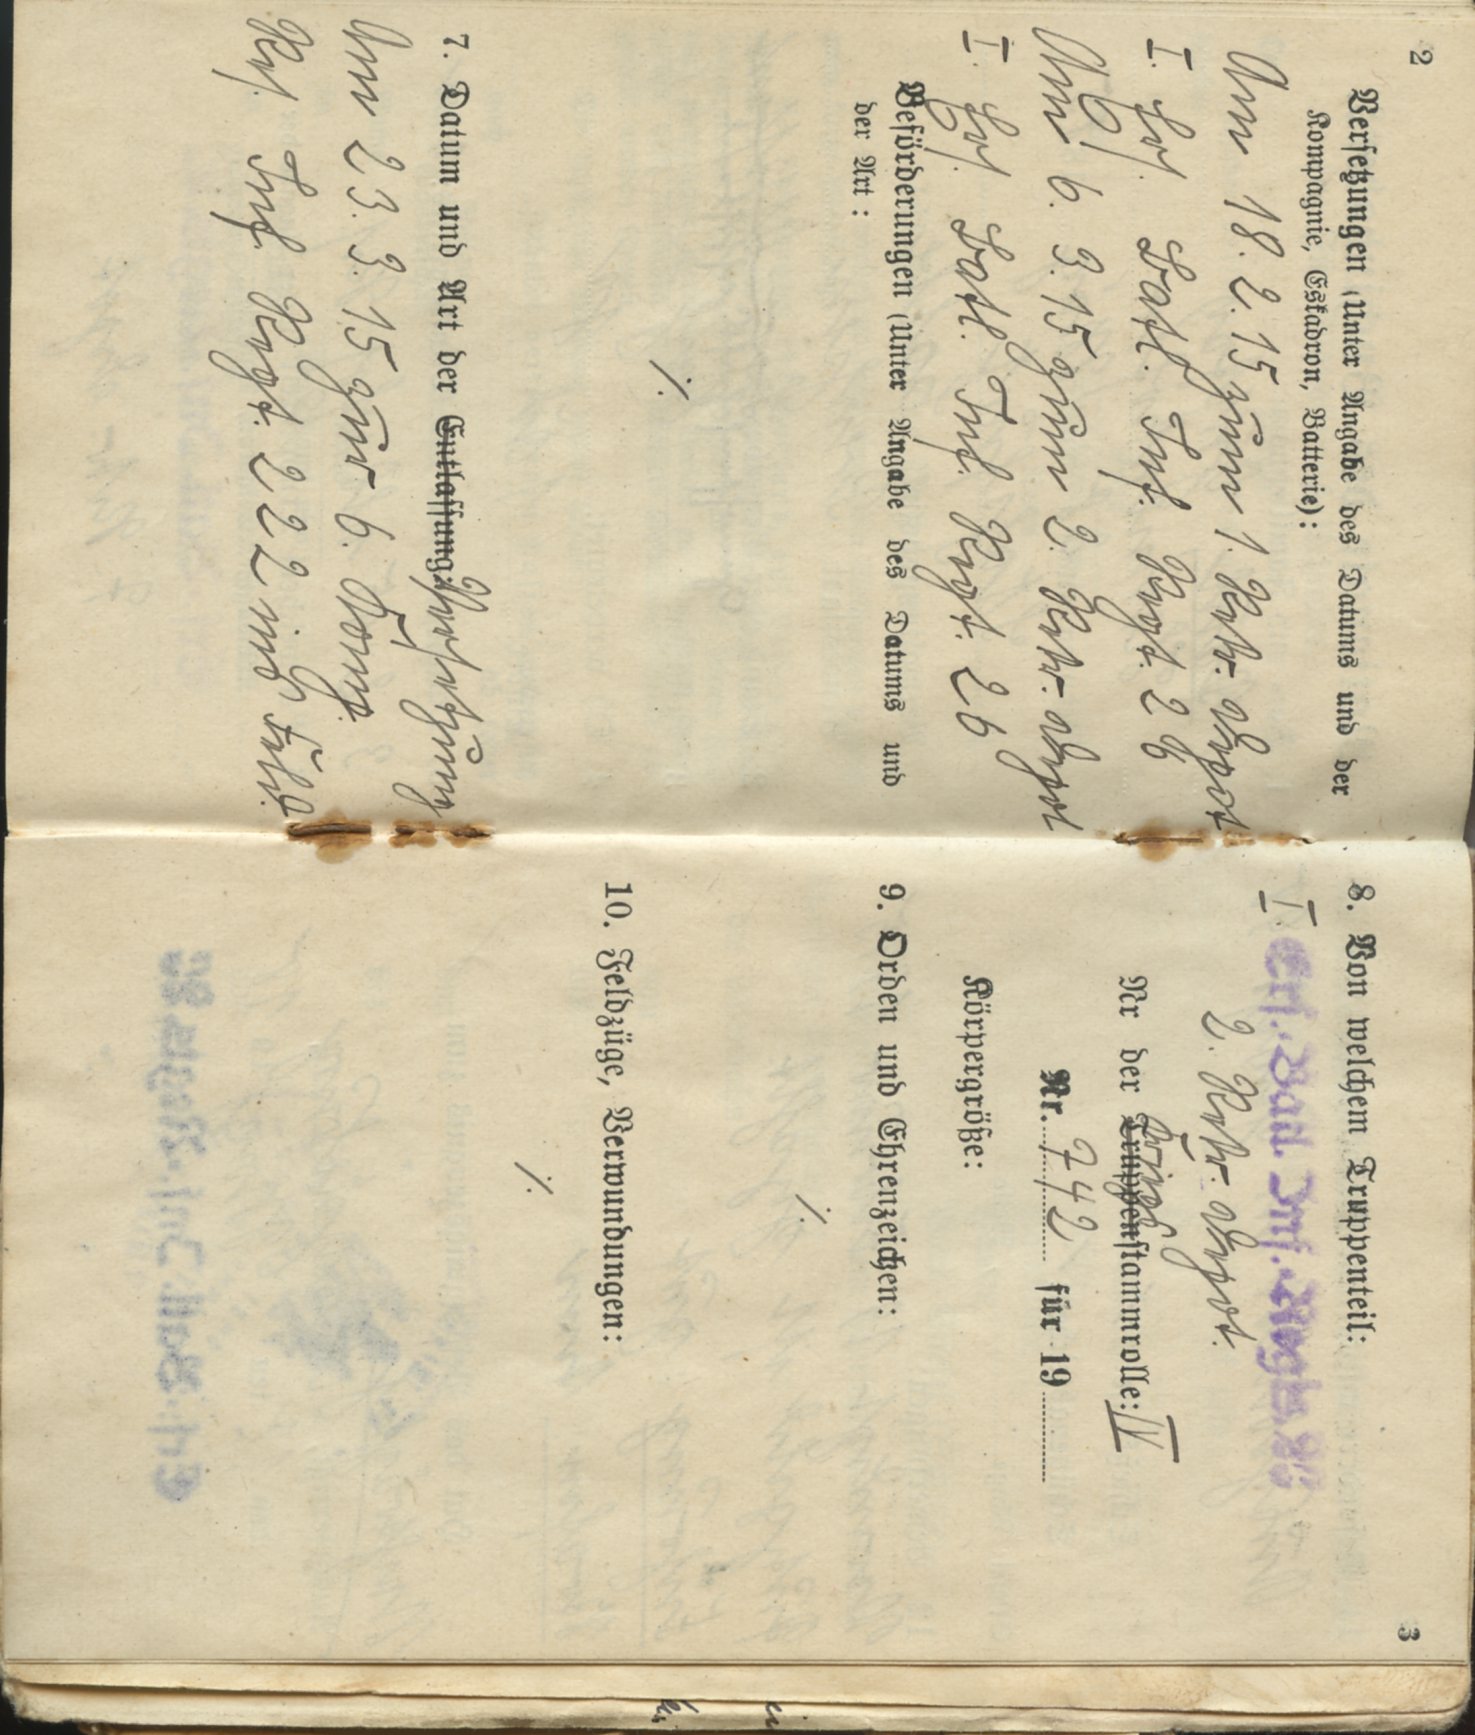 2
Versetzungen (Unter Angabe des Datums und der
Kompagnie, Eskadron, Batterie):
Am 18. 2. 15 zum 1. Rekr. Depot
I. Ers. Batl. Inf. Regt. 26
Am 6. 3. 15 zum 2. Rekr. Depot
I. Ers. Batl. Inf. Regt. 26
Beförderungen (Unter Angabe des Datums und
der Art:
./.
7. Datum und Art der Entlassung: Versetzung
Am 23. 3. 15 zur 6. Komp.
Res. Inf. Regt. 222 ins Feld.
3
8. Von welchem Truppenteil:
I. Ers. Batl. Inf. Regts. 26
2. Rekr. Depot.
Nr der Truppenstammrolle: IV
Kriegs
Nr. 742 für 19
Körpergröße:
9. Orden und Ehrenzeichen:
./.
10. Feldzüge, Verwundungen:
./.